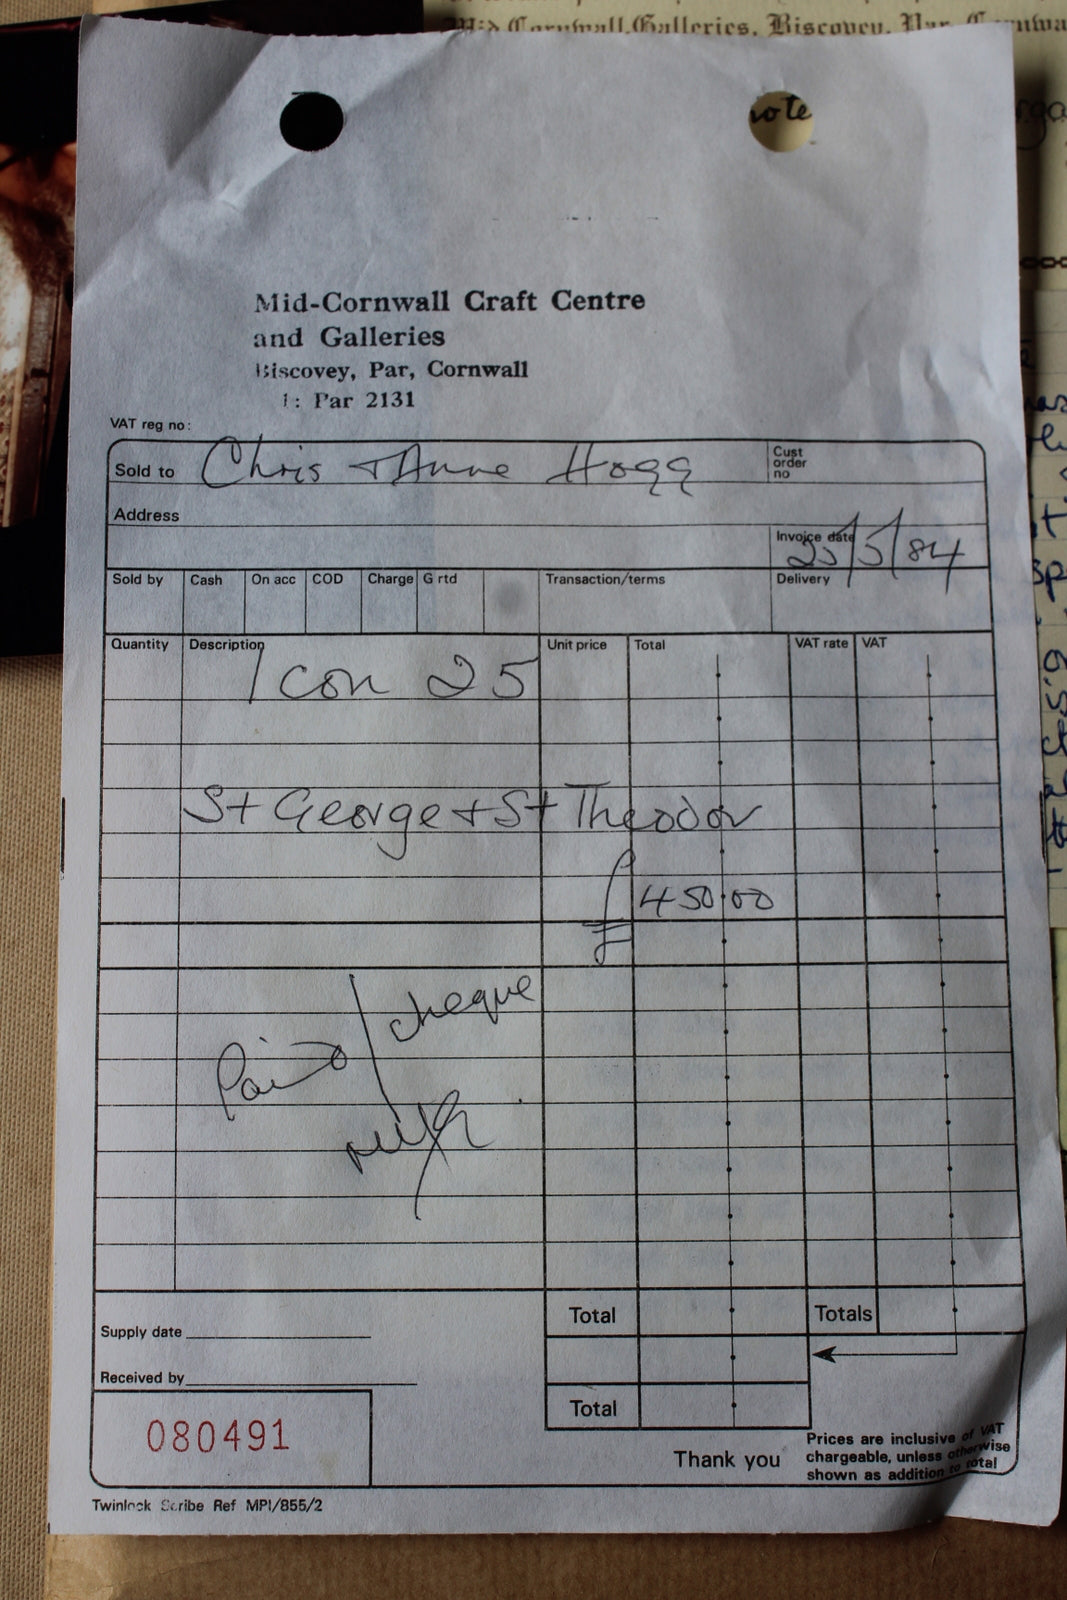 Mid-Cornwall Galleries, Biscovey, Par, Cornwa
note
Mid-Cornwall Craft Centre
and Galleries
Biscovey, Par, Cornwall
: Par 2131
VAT reg no:
Sold to Chris + Anne Hogg
Cust order no
Address
Invoice date 25/5/84
Sold by Cash On acc COD Charge G rtd Transaction/terms Delivery
Quantity Description Unit price Total VAT rate VAT
Icon 25
St George + St Theodor
£450.00
Paid / cheque
Total Totals
Supply date
Received by
Total
080491
Thank you
Prices are inclusive of VAT
chargeable, unless otherwise
shown as addition to total
Twinlock Scribe Ref MPI/855/2